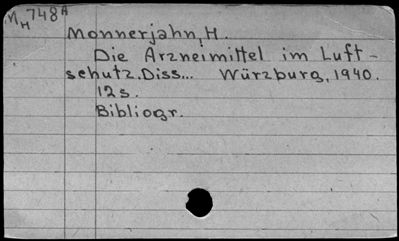 M_H 748A
Monnerjahn, H.
Die Arzneimittel im Luft-
schutz. Diss... Würzburg, 1940.
12s.
Bibliogr.